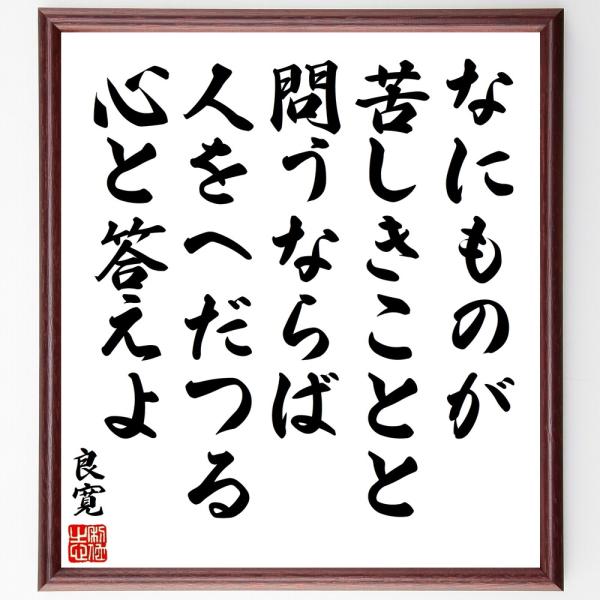 なにものが
苦しきことと
問うならば
人をへだつる
心と答えよ
良寛